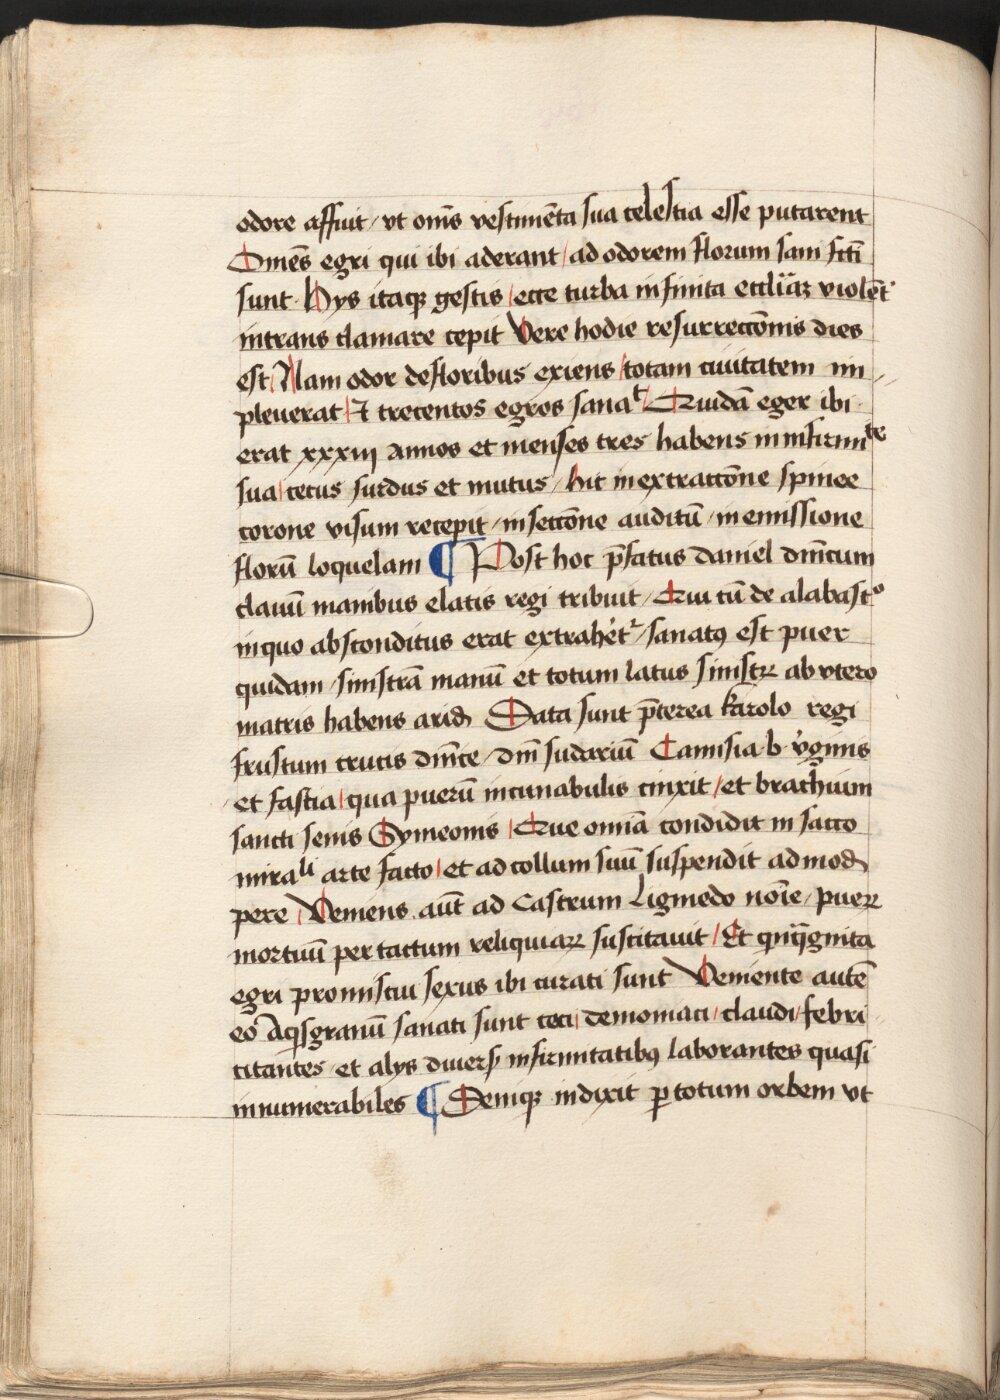 odore affuit / vt om̄s vestimēta sua celestia esse putarent
Omēs egri qui ibi aderant / ad odorem florum sani fc̄ti
sunt · Hys itaqꝫ gestis / ecce turba infinita eccl̄iaꝝ violēt᷑
intrans clamare cepit Vere hodie resurrecc̄onis dies
est / Nam odor de floribus exiens / totam ciuitatem im
pleuerat / ⁊ trecentos egros sanaᵗ / Quidā eger ibi
erat xxxiij annos et menses tres habens in infirmiᵗᵉ
sua / cecus surdus et mutus / hic in extracc̄one spinee
corone visum recepit / in secc̄one auditū / in emissione
florū loquelam ¶ Post hoc p̄fatus daniel dn̄icum
clauū manibus elatis regi tribuit / Qui cū de alabastᵒ
in quo absconditus erat extrahēt᷑ / sanatꝰ est puer
quidam / sinistrā manū et totum latus sinistꝝ ab vtero
matris habens arid̄ Data sunt p̄terea karolo regi
frustum crucis dn̄ice / dn̄i sudariū Camisia b v̓ginis
et fascia / qua puerū in cunabulis cinxit / et brachium
sancti senis Symeonis / Que om̄ia condidit in sacco
miraˡⁱ arte facto / et ad collum suū suspendit ad mod̄
pere / Veniens aūt ad Castrum Ligmedo no̅i̅e / pueꝝ
mortuū per tactum reliquiaꝝ suscitauit / Et qnq̄gnita
egri promiscui sexus ibi curati sunt Veniente autē
eo Aqisgranū sanati sunt ceci / demoniaci / claudi / febri
citantes / et alys diuers̄ infirmitatibꝰ laborantes quasi
innumerabiles ¶ Deniqꝫ indixit ꝑ totum orbem vt